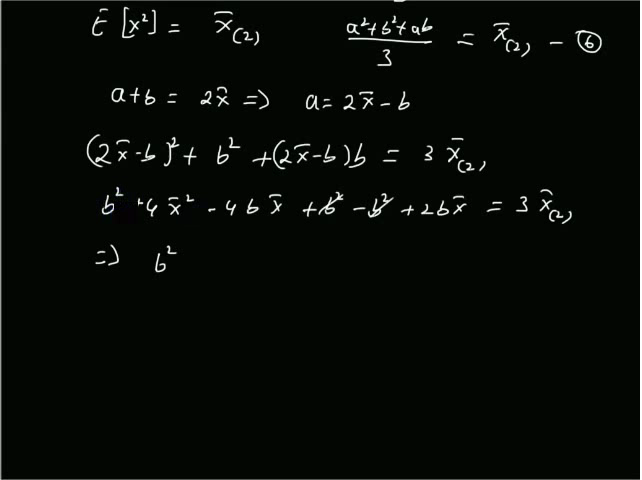 E [x²] = x̄₍₂₎   (a²+b²+ab)/3 = x̄₍₂₎ - ⑥
a+b = 2x̄ => a = 2x̄ - b
(2x̄-b)² + b² + (2x̄-b)b = 3 x̄₍₂₎
b² + 4x̄² - 4bx̄ + b² - b² + 2bx̄ = 3 x̄₍₂₎
=> b²